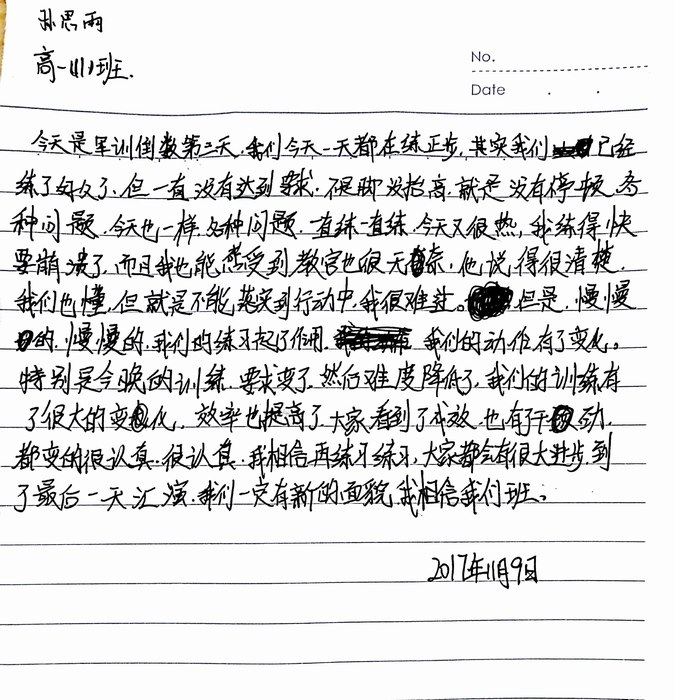 孙思雨
高一(11)班.
No.
Date . .
今天是军训倒数第二天,我们今天一天都在练正步,其实我们已经
练了好久了,但一直没有达到要求,不是脚没抬高,就是没有停顿,各
种问题,今天也一样,各种问题,一直练一直练,今天又很热,我练得快
要崩溃了,而且我也能感受到教官也很无奈,他说得很清楚,
我们也懂,但就是不能落实到行动中,我很难过。但是,慢慢
的,慢慢的,我们的练习起了作用,我们的动作有了变化。
特别是今晚的训练,要求变了,然后难度降低了,我们的训练有
了很大的变化,效率也提高了,大家看到了成效,也有了干劲,
都变的很认真,很认真,我相信再练习练习,大家都会有很大进步,到
了最后一天汇演,我们一定有新的面貌,我相信我们班。
2017年11月9日